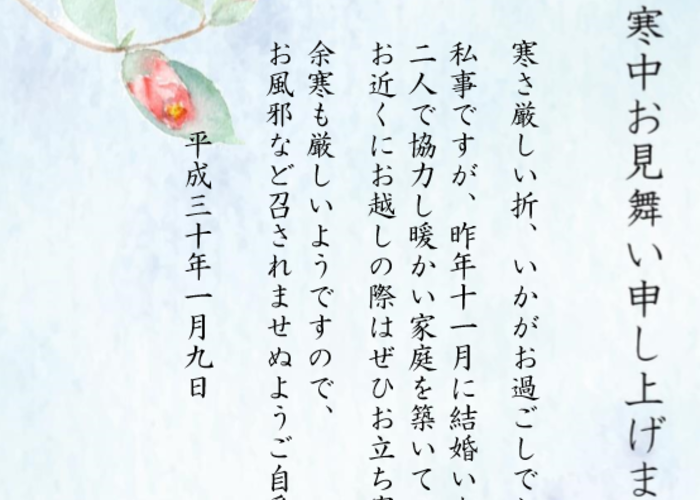 寒中お見舞い申し上げま
寒さ厳しい折、いかがお過ごしでし
私事ですが、昨年十一月に結婚い
二人で協力し暖かい家庭を築いて
お近くにお越しの際はぜひお立ち
余寒も厳しいようですので、
お風邪など召されませぬようご自
平成三十年一月九日